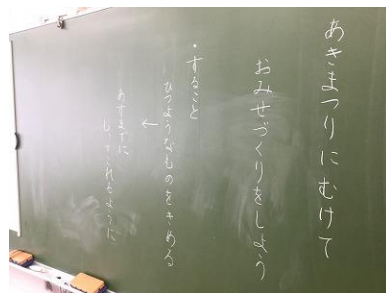 あきまつりにむけて
おみせづくりをしよう
・すること
ひつようなものをきめる
←
あすまでに
もってこれるように